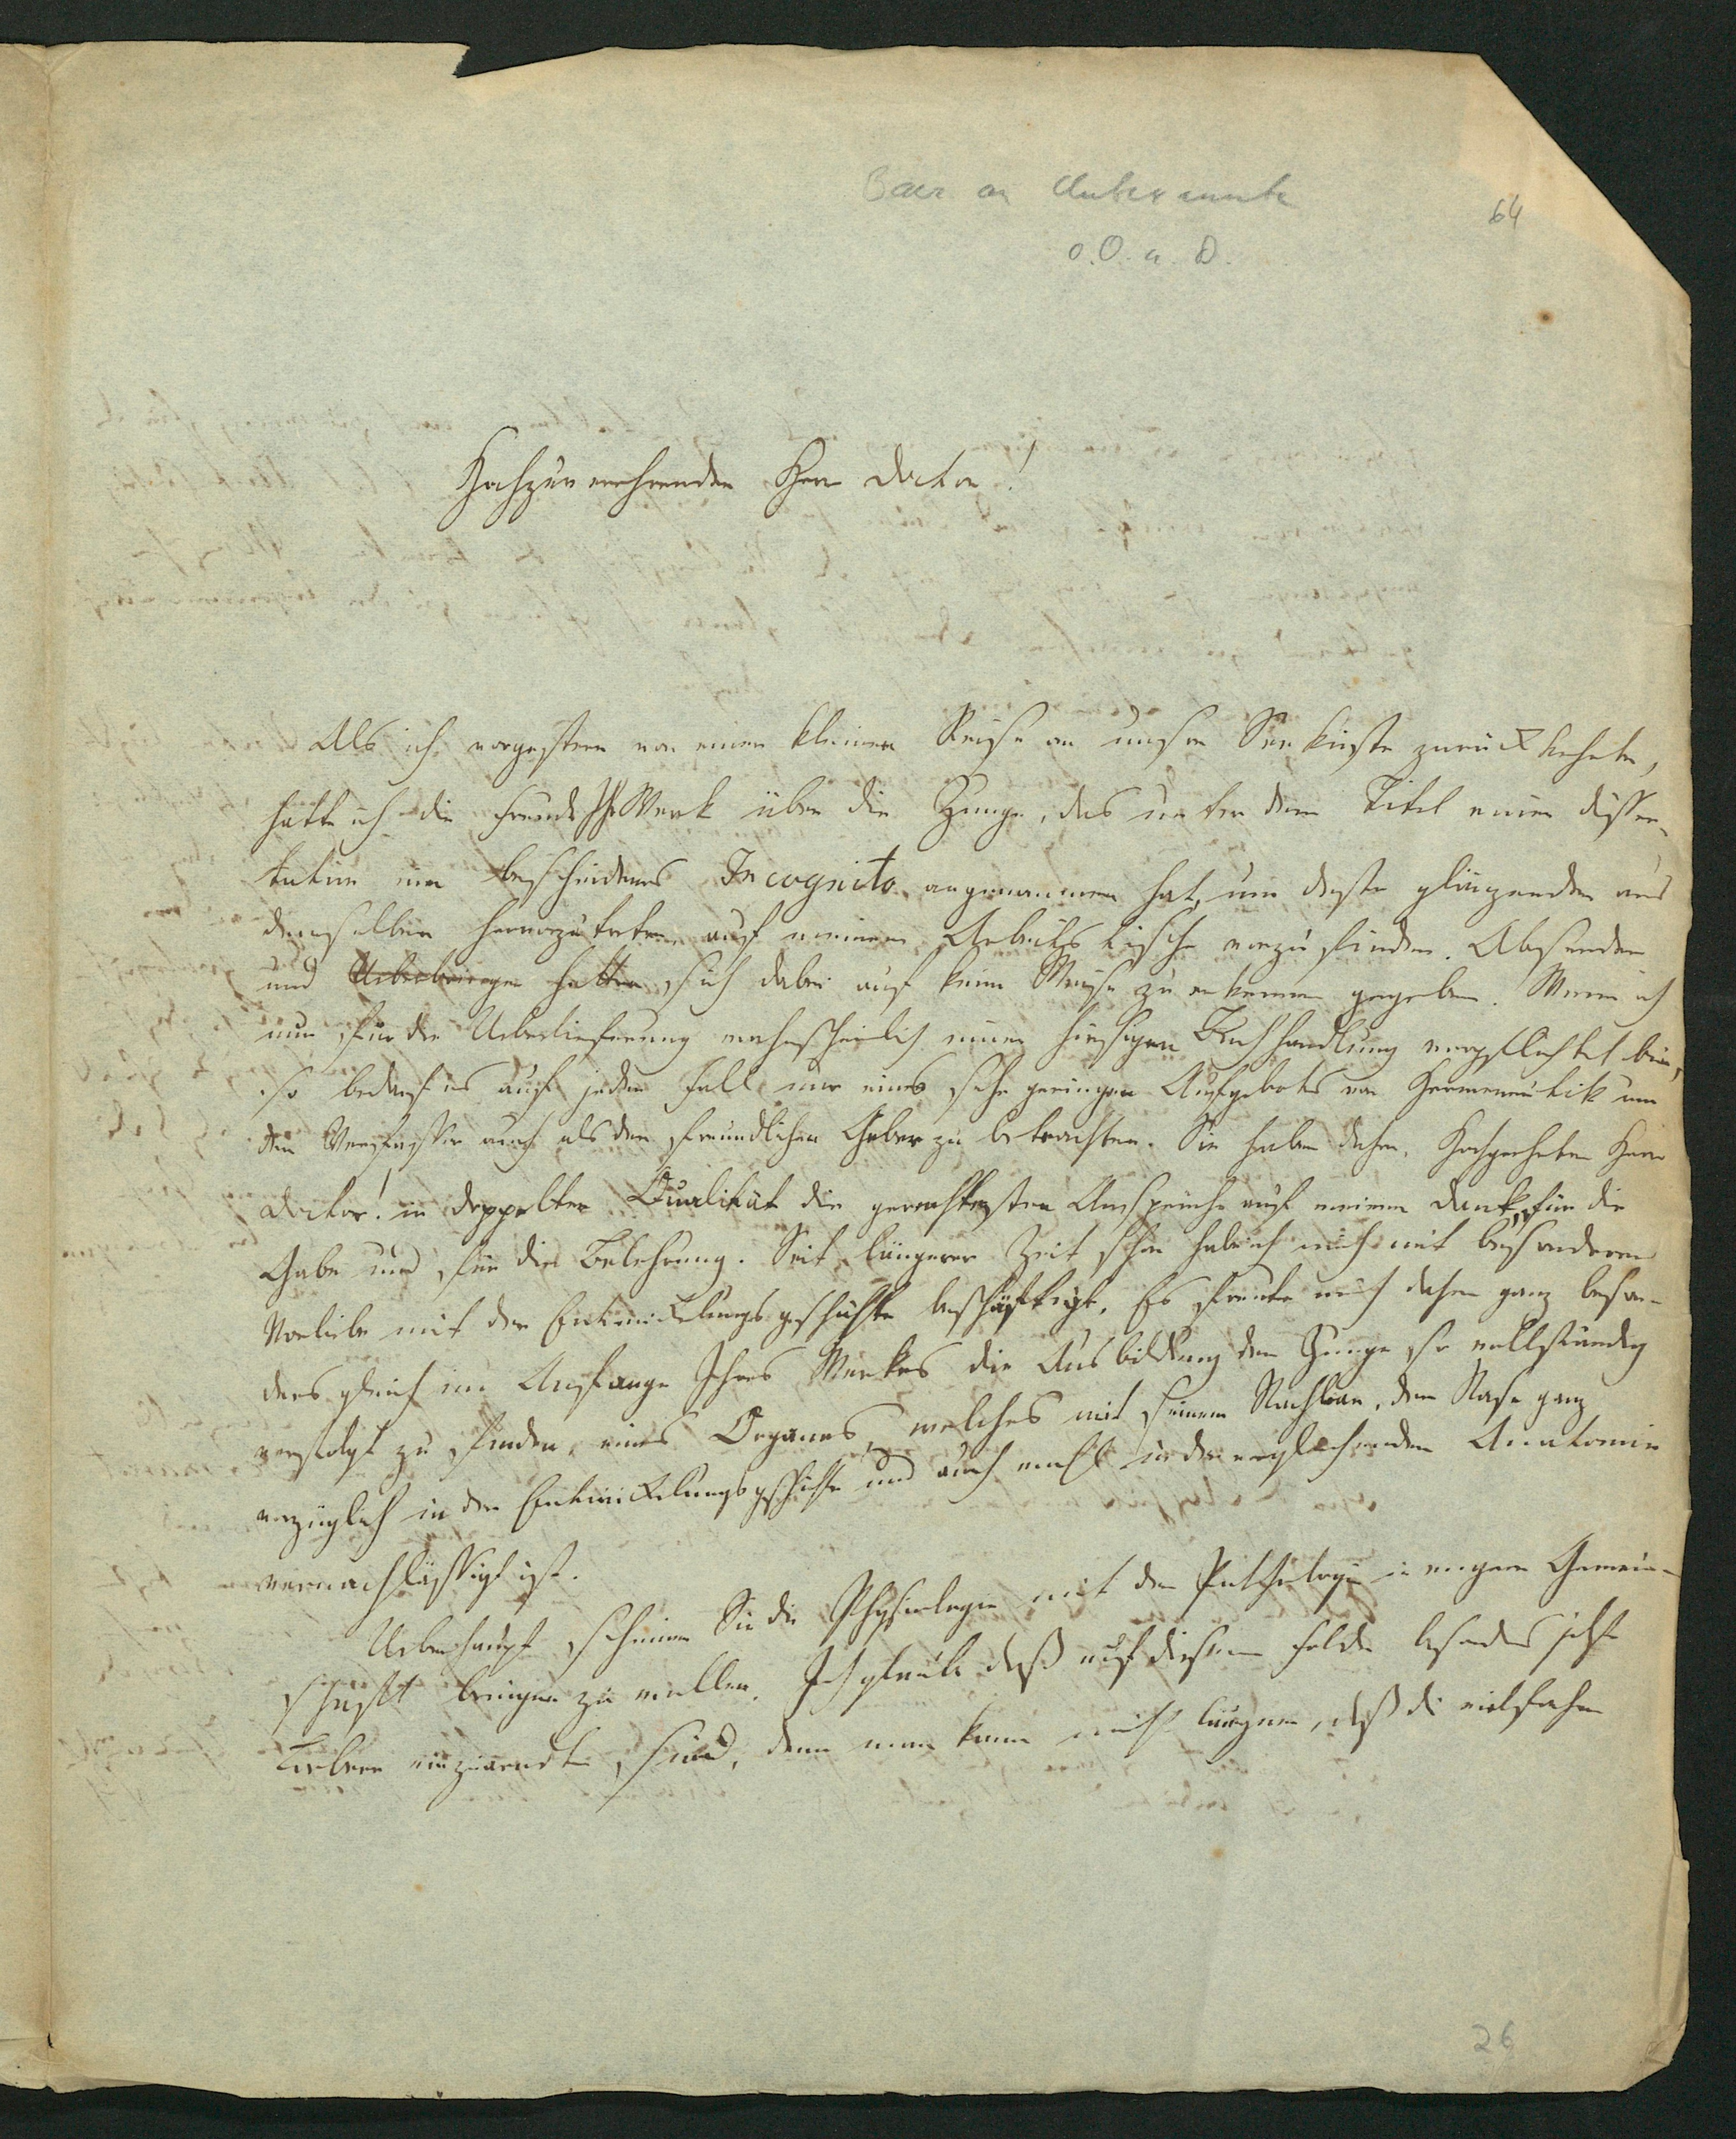 Baer an Unbekannte
64
o. O. u. D.
Hochzuverehrender Herr Doctor!
Als ich vorgestern von einer kleinen Reise an unsre Seeküste zurückkehrte,
hatte ich die Freude Ihr Werk über die Zunge, das unter dem Titel einer Disser-
tation ein bescheidenes Incognito angenommen hat, um desto glänzender aus
demselben hervorzutreten auf meinem Arbeitstische vorzufinden. Absender
und Ueberbringer hatten sich dabei auf keine Weise zu erkennen gegeben. Wenn ich
nun für die Ueberlieferung wahrscheinlich einer hiesigen Buchhandlung verpflichtet bin,
so bedarf es auf jeden Fall nur eines sehr geringen Aufgebots von Hermeneutik um
den Verfasser auch als den freundlichen Geber zu betrachten. Sie haben daher, Hochgeehrter Herr
Doctor! in doppelter Qualität die gerechtesten Ansprüche auf meinen Dank, für die
Gabe und für die Belehrung. Seit längerer Zeit schon habe ich mich mit besonderer
Vorliebe mit der Entwickelungsgeschichte beschäftigt. Es freute mich daher ganz beson-
ders gleich im Anfange Ihres Werkes die Ausbildung der Zunge so vollständig
verfolgt zu finden, eines Organes, welches mit seinem Nachbar, der Nase ganz
vorzüglich in der Entwickelungsgeschichte und auch wohl in der vergleichenden Anatomie
vernachlässigt ist.
Ueberhaupt scheinen Sie die Physiologie mit der Pathologie in engere Gemein-
schaft bringen zu wollen. Ich glaube daß auf diesem Felde besonders jetzt
Lorbeer einzuerndten sind, denn man kann nicht läugnen, daß die vielfachen
26